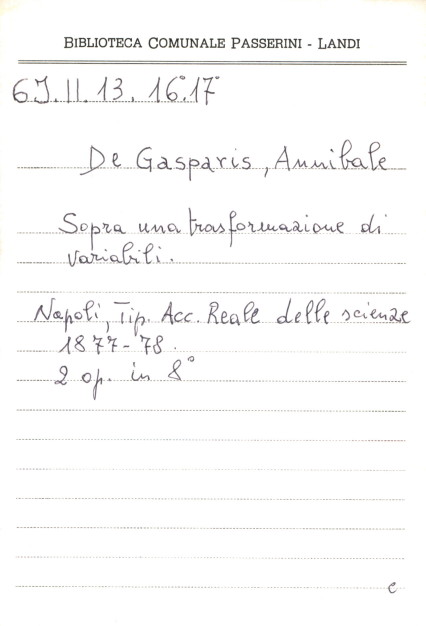 BIBLIOTECA COMUNALE PASSERINI - LANDI
6J.II.13.16°.17°
De Gasparis, Annibale
Sopra una trasformazione di
variabili.
Napoli, Tip. Acc. Reale delle scienze
1877-78.
2 op. in 8°
c